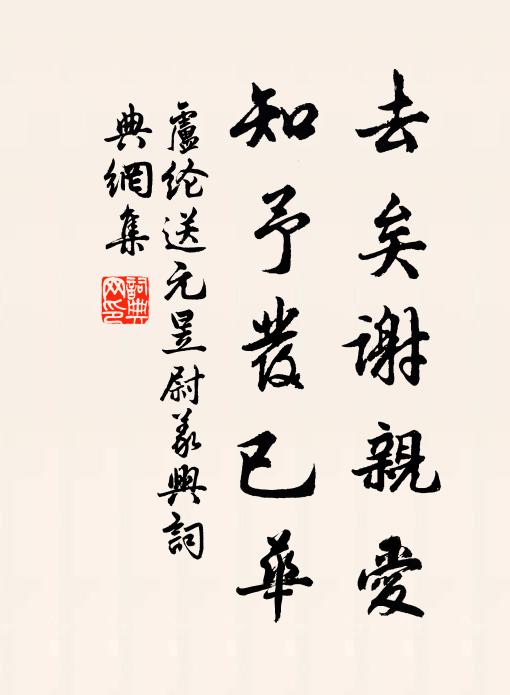 去矣謝親愛
知予發已華
盧纶送元昱尉義興詞
典網集
詞典
网印